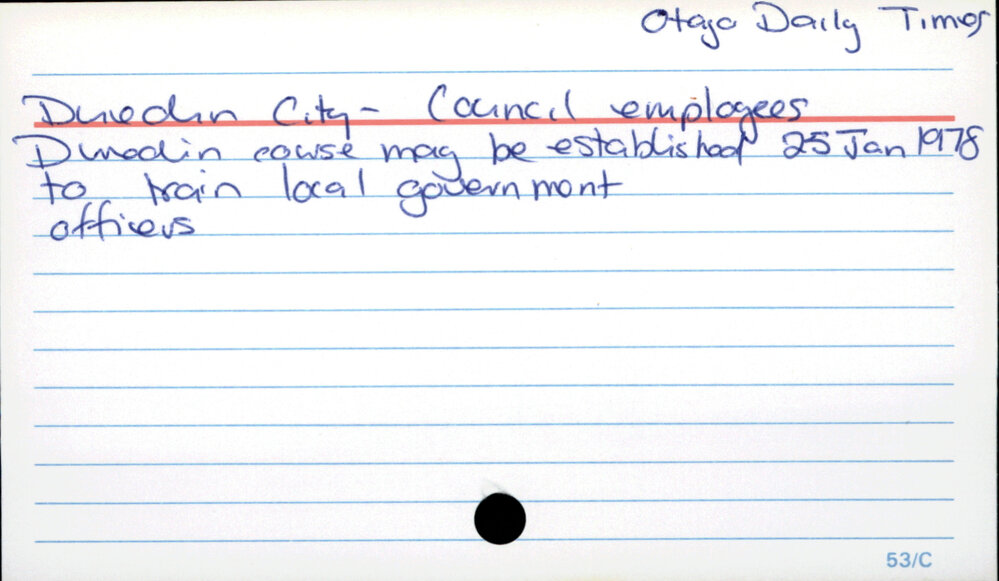 Otago Daily Times
Dunedin City - Council employees
Dunedin course may be established 25 Jan 1978
to train local government
officers
53/C